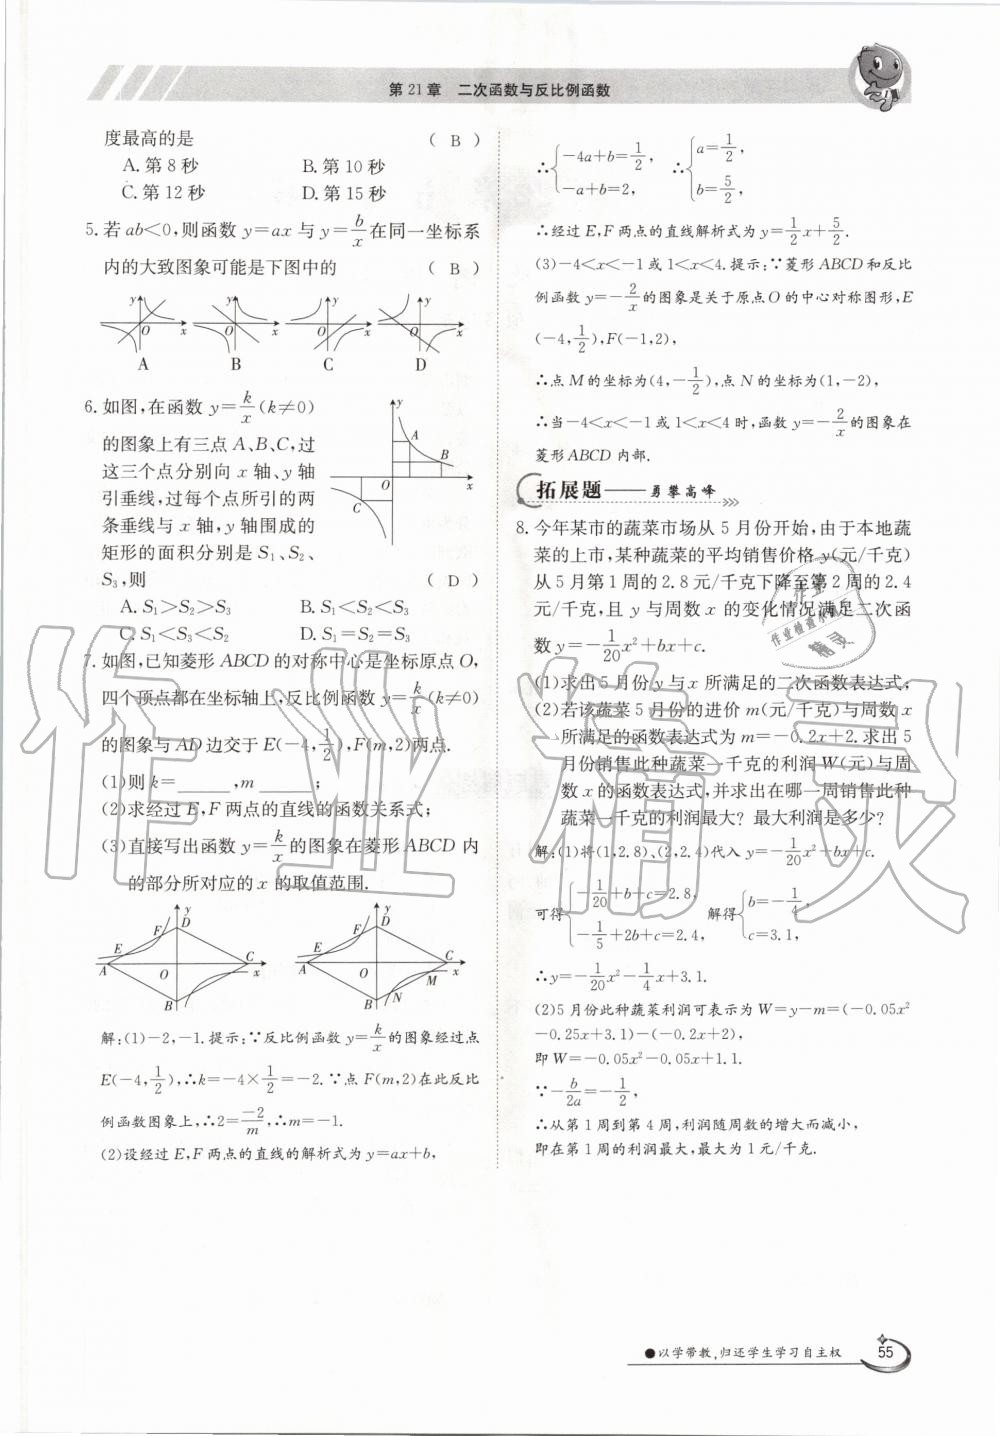 第21章 二次函数与反比例函数
度最高的是 ( B )
A. 第8秒 B. 第10秒
C. 第12秒 D. 第15秒
5. 若 ab<0,则函数 y=ax 与 y=b/x 在同一坐标系
内的大致图象可能是下图中的 ( B )
A B C D
6. 如图,在函数 y=k/x (k≠0)
的图象上有三点 A、B、C,过
这三个点分别向 x 轴、y 轴
引垂线,过每个点所引的两
条垂线与 x 轴,y 轴围成的
矩形的面积分别是 S₁、S₂、
S₃,则 ( D )
A. S₁>S₂>S₃ B. S₁<S₂<S₃
C. S₁<S₃<S₂ D. S₁=S₂=S₃
7. 如图,已知菱形 ABCD 的对称中心是坐标原点 O,
四个顶点都在坐标轴上,反比例函数 y=k/x (k≠0)
的图象与 AD 边交于 E(-4,1/2),F(m,2)两点.
(1)则 k=______,m______;
(2)求经过 E,F 两点的直线的函数关系式;
(3)直接写出函数 y=k/x 的图象在菱形 ABCD 内
的部分所对应的 x 的取值范围.
解:(1)-2,-1. 提示:∵反比例函数 y=k/x 的图象经过点
E(-4,1/2),∴k=-4×1/2=-2. ∵点 F(m,2)在此反比
例函数图象上,∴2=-2/m,∴m=-1.
(2)设经过 E,F 两点的直线的解析式为 y=ax+b,
∴{-4a+b=1/2, -a+b=2, ∴{a=1/2, b=5/2,
∴经过 E,F 两点的直线解析式为 y=1/2x+5/2.
(3)-4<x<-1 或 1<x<4. 提示:∵菱形 ABCD 和反比
例函数 y=-2/x 的图象是关于原点 O 的中心对称图形,E
(-4,1/2),F(-1,2),
∴点 M 的坐标为(4,-1/2),点 N 的坐标为(1,-2),
∴当-4<x<-1 或 1<x<4 时,函数 y=-2/x 的图象在
菱形 ABCD 内部.
拓展题——勇攀高峰
8. 今年某市的蔬菜市场从5月份开始,由于本地蔬
菜的上市,某种蔬菜的平均销售价格 y(元/千克)
从5月第1周的2.8元/千克下降至第2周的2.4
元/千克,且 y 与周数 x 的变化情况满足二次函
数 y=-1/20x²+bx+c.
(1)求出5月份 y 与 x 所满足的二次函数表达式;
(2)若该蔬菜5月份的进价 m(元/千克)与周数 x
所满足的函数表达式为 m=-0.2x+2. 求出5
月份销售此种蔬菜一千克的利润 W(元)与周
数 x 的函数表达式,并求出在哪一周销售此种
蔬菜一千克的利润最大?最大利润是多少?
解:(1)将(1,2.8)、(2,2.4)代入 y=-1/20x²+bx+c.
可得{-1/20+b+c=2.8, -1/5+2b+c=2.4, 解得{b=-1/4, c=3.1,
∴y=-1/20x²-1/4x+3.1.
(2)5月份此种蔬菜利润可表示为 W=y-m=(-0.05x²
-0.25x+3.1)-(-0.2x+2),
即 W=-0.05x²-0.05x+1.1.
∵-b/2a=-1/2,
∴从第1周到第4周,利润随周数的增大而减小,
即在第1周的利润最大,最大为1元/千克.
●以学带教,归还学生学习自主权
55
作业精灵